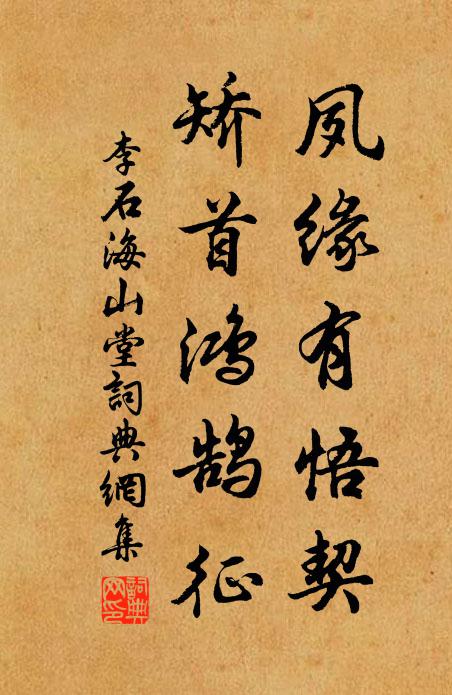 夙缘有悟契
矫首鸿鹄征
李石海山堂詞典網集
詞典网印